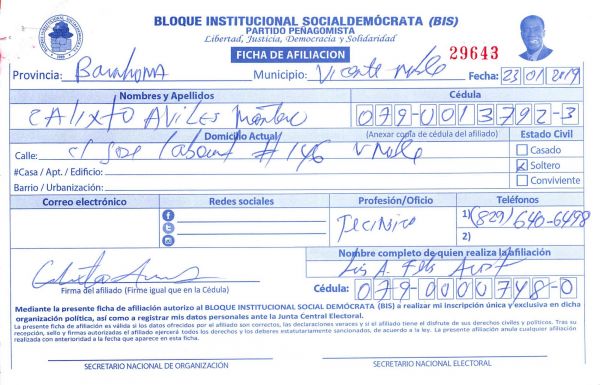 BLOQUE INSTITUCIONAL SOCIALDEMÓCRATA (BIS)
PARTIDO PEÑAGOMISTA
Libertad, Justicia, Democracia y Solidaridad
FICHA DE AFILIACION
29643
Provincia: Barahona Municipio: Vicente Noble Fecha: 23/01/2019
Nombres y Apellidos Cédula
CALIXTO AVILES Montero 079-0013792-3
Domicilio Actual (Anexar copia de cédula del afiliado) Estado Civil
Calle: c/ Jose #146 V Noble Casado
#Casa / Apt. / Edificio: Soltero
Barrio / Urbanización: Conviviente
Correo electrónico Redes sociales Profesión/Oficio Teléfonos
Tecnico 1) (829) 640-6498
2)
Nombre completo de quien realiza la afiliación
Luis A. Acosta
Firma del afiliado (Firme igual que en la Cédula) Cédula: 079-0000748-0
Mediante la presente ficha de afiliación autorizo al BLOQUE INSTITUCIONAL SOCIAL DEMÓCRATA (BIS) a realizar mi inscripción única y exclusiva en dicha
organización política, así como a registrar mis datos personales ante la Junta Central Electoral.
La presente ficha de afiliación es válida si los datos ofrecidos por el afiliado son correctos, las declaraciones veraces y si el titular tiene el disfrute de sus derechos civiles y políticos. Tras su
recepción, sello y firmas autorizadas el afiliado ejercerá todos los derechos y los deberes estatutariamente sancionados, de acuerdo a la ley. La presente afiliación anula cualquier afiliación
realizada con anterioridad a la fecha que aparece en esta ficha.
SECRETARIO NACIONAL DE ORGANIZACIÓN SECRETARIO NACIONAL ELECTORAL